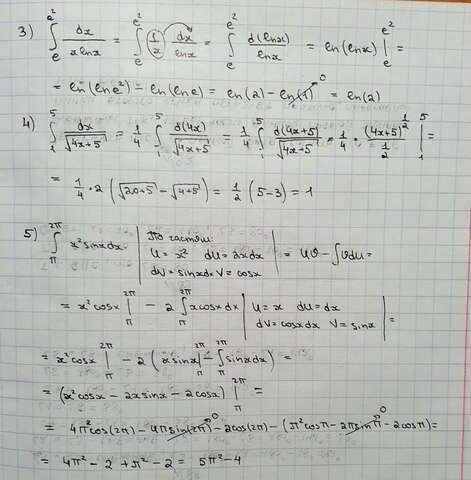 3) ∫_e^{e²} dx / (x ln x) = ∫_e^{e²} (1/x) dx / ln x = ∫_e^{e²} d(ln x) / ln x = ln(ln x) |_e^{e²} =
= ln(ln e²) - ln(ln e) = ln(2) - ln(1)→0 = ln(2)
4) ∫_1^5 dx / √(4x+5) = 1/4 ∫_1^5 d(4x) / √(4x+5) = 1/4 ∫_1^5 d(4x+5) / √(4x+5) = 1/4 · (4x+5)^{1/2} / (1/2) |_1^5 =
= 1/4 · 2 (√(20+5) - √(4+5)) = 1/2 (5-3) = 1
5) ∫_π^{2π} x² sinx dx = | По частям: U = x² dU = 2xdx dV = sinxdx V = cosx | = UV - ∫VdU =
= x² cosx |_π^{2π} - 2 ∫_π^{2π} x cosx dx | U = x dU = dx dV = cosxdx V = sinx | =
= x² cosx |_π^{2π} - 2 (x sinx |_π^{2π} - ∫_π^{2π} sinxdx) =
= (x² cosx - 2x sinx - 2cosx) |_π^{2π} =
= 4π² cos(2π) - 4π sin(2π)→0 - 2cos(2π) - (π² cosπ - 2π sinπ→0 - 2cosπ) =
= 4π² - 2 + π² - 2 = 5π² - 4